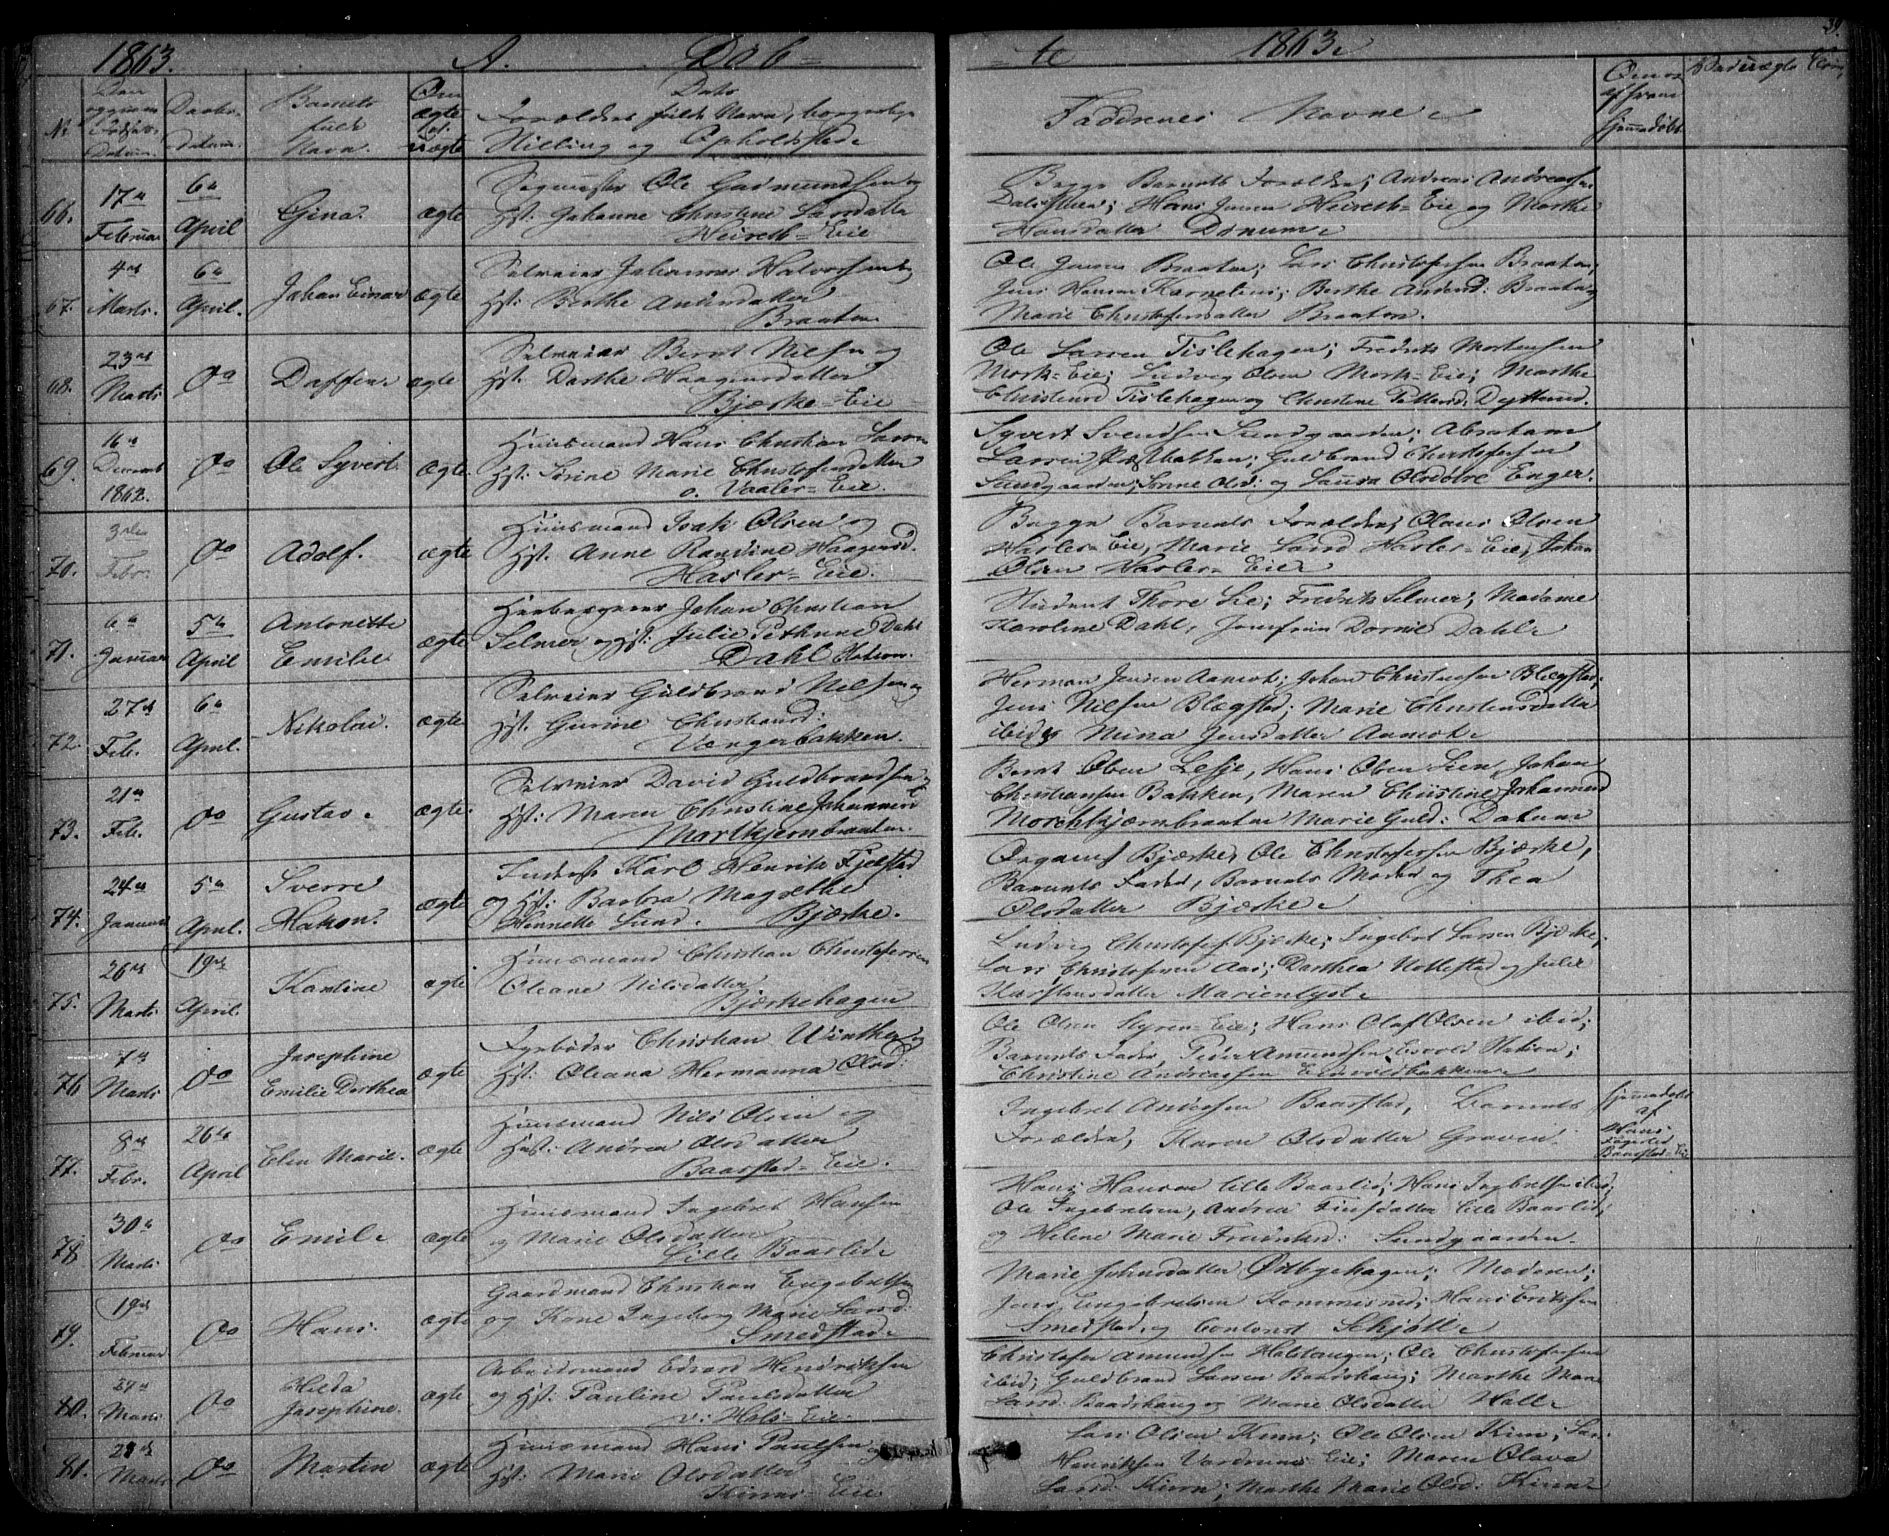 1863. A. Døb=
=te 1863. 39.
No.
Datum.
Daabs-
Datum.
Barnets
fulde
Navn.
Om
ægte
el.
uægte
Dato
Forældres fulde Navn, borgerlige
Stilling og Opholdsted.
Faddernes Navne.
Om og
af hvem
hjemmedøbt
66.
17de
Februar
6te
April
Gina.
ægte
Ole Gudmundsen og
Hst: Johanne Christine Larsdatter
Heireth=Eie
Begge Barnets Forældre; Andreas Andreassen
Hans Jensen Heireth=Eie og Marthe
Hansdatter Dønnum.
67.
4de
Marts.
6te
April.
Johan Einar
ægte
Selveier Johannes Halvorsen og
Hst: Berthe Andersdatter
Braaten
Ole Jensen Braaten; Lars Christophersen Braaten;
Jens Hansen Kornelius; Berthe Andersd: Braaten og
Marie Christophersdatter Braaten.
68.
23de
Marts
Do
Daffin
ægte
Selveier Bernt Nilsen og
Hst: Dorthe Haagensdatter
Bjærke=Eie
Ole Larsen Tislehagen; Fredrik Mortensen
Mork=Eie; Ludvig Olsen Mork=Eie; Marthe
Christensd Tislehagen og Christine Pettersd. Dyttsund.
69.
16de
Decemb
1862.
Do
Ole Syvert.
ægte
Huusmand Hans Christian Larsen
Hst: Sørine Marie Christophersdatter
o. Vaaler=Eie.
Syvert Svendsen Sundgaarden; Abraham
Larsen Guldbrand Christophersen
Sundgaarden; Sørine Olsd: og Laura Olsd. øvre Enger.
70.
3die
Febr.
Do
Adolf.
ægte
Huusmand Isak Olsen og
Hst: Anne Randine Haagensd.
Hasler=Eie.
Begge Barnets Forældre; Olaus Olsen
Hasler=Eie, Marie Larsd Hasler=Eie, Johan
Olsen Hasler=Eie
71.
6te
Januar
5te
April
Antonette
Emilie
ægte
Johan Christian
Selmer og Hst: Julie Pethrine Dahl
Dahl Station.
Student Thore Lie; Fredrik Selmer; Madame
Karoline Dahl, Jomfru Dorine Dahl.
72.
27de
Feb.
6te
April.
Nikolai.
ægte
Selveier Guldbrand Nilsen og
Hst: Gurine Christensd:
Vengerbakken.
Herman Jensen Aamot; Johan Christensen Blegstad;
Jens Nilsen Blegstad; Marie Christensdatter
ibid; og Mina Jensdatter Aamot.
73.
21de
Feb.
Do
Gustav.
ægte.
Selveier David Guldbrandsen og
Hst: Maren Christine Johannesd
Mortkjernbraaten.
Bernt Olsen Lesje, Hans Olsen Lien, Johan
Christiansen Bakken, Maren Christine Johannesd
Mortkjernbraaten Marie Guld:
74.
24de
Januar
5te
April.
Sverre
Hakon.
ægte
Karl Henrik Fjelstad
og Hst: Barbra Magrethe
Hennette Lund. Bjærke.
Bjærke, Ole Christophersen Bjærke,
Barnets Fader, Barnets Moder og Thea
Olsdatter Bjærke.
75.
26de
Marts
19de
April.
Karoline
ægte
Huusmand Christian Christophersen
Oleane Nilsdatter
Bjærkehagen
Ludvig Christophers. Bjærke; Ingebret Larsen Bjærke;
Lars Christophersen Aas; Dorthea Nottestad og Julie
Karstensdatter Marienlyst.
76
7de
Marts
Do
Josephine
Emilie Dorthea
ægte
Fyrbøder Christian Winther og
Hst: Oleana Hermanna Olsd:
Ole Olsen Styren=Eie; Hans Olaf Olsen ibid;
Barnets Fader, Peder Amundsen Eidsvold Station;
Christine Andreassen Eidsvoldbakken.
77.
8de
Febr.
26de
April
Elen Marie.
ægte
Huusmand Nils Olsen og
Hst: Andrea Olsdatter
Baarstad=Eie.
Ingebret Andersen Baarstad, Barnets
Forældre, Karen Olsdatter Graven.
hjemmedøbt
af
Hans
Baarstad=Eie
78
30te
Marts
Do
Emil.
ægte
Huusmand Ingebret Hansen
og Marie Olsdatter
Lille Baarlid.
Hans Hansen lille Baarlid; Hans Ingebretsen ibid;
Ole Ingebretsen, Andrea Finsdatter lille Baarlid;
og Helene Marie Fredriksd: Sundgaarden.
79.
19de
Februar
Do
Hans.
ægte
Gaardmand Christian Engebretsen
og Kone Ingeborg Marie Larsd:
Smedstad.
Marie Johnsdatter Østbyehagen; Moderen;
Jens Engebretsen Kommisrud; Hans Eriksen
Smedstad og Schjøll.
80.
27de
Marts
Do
Hilda
Josephine.
ægte
Arbeidsmand Edvard Hendriksen
og Hst: Pauline Paulsdatter
v: Hols=Eie.
Christofer Amundsen Holstangen; Ole Christophersen
ibid; Guldbrand Larsen Baadshaug; Marthe Marie
Larsd. Baadshaug og Marie Olsdatter Holl.
81.
Marts
Do
Martin
ægte
Huusmand Hans Paulsen og
Hst: Marie Olsdatter
Kinns=Eie.
Lars Olsen Kinn; Ole Olsen Kinn; Lars
Henriksen Eie; Maren Olava
Larsd. Kinn; Marthe Marie Olsd. Kinn.